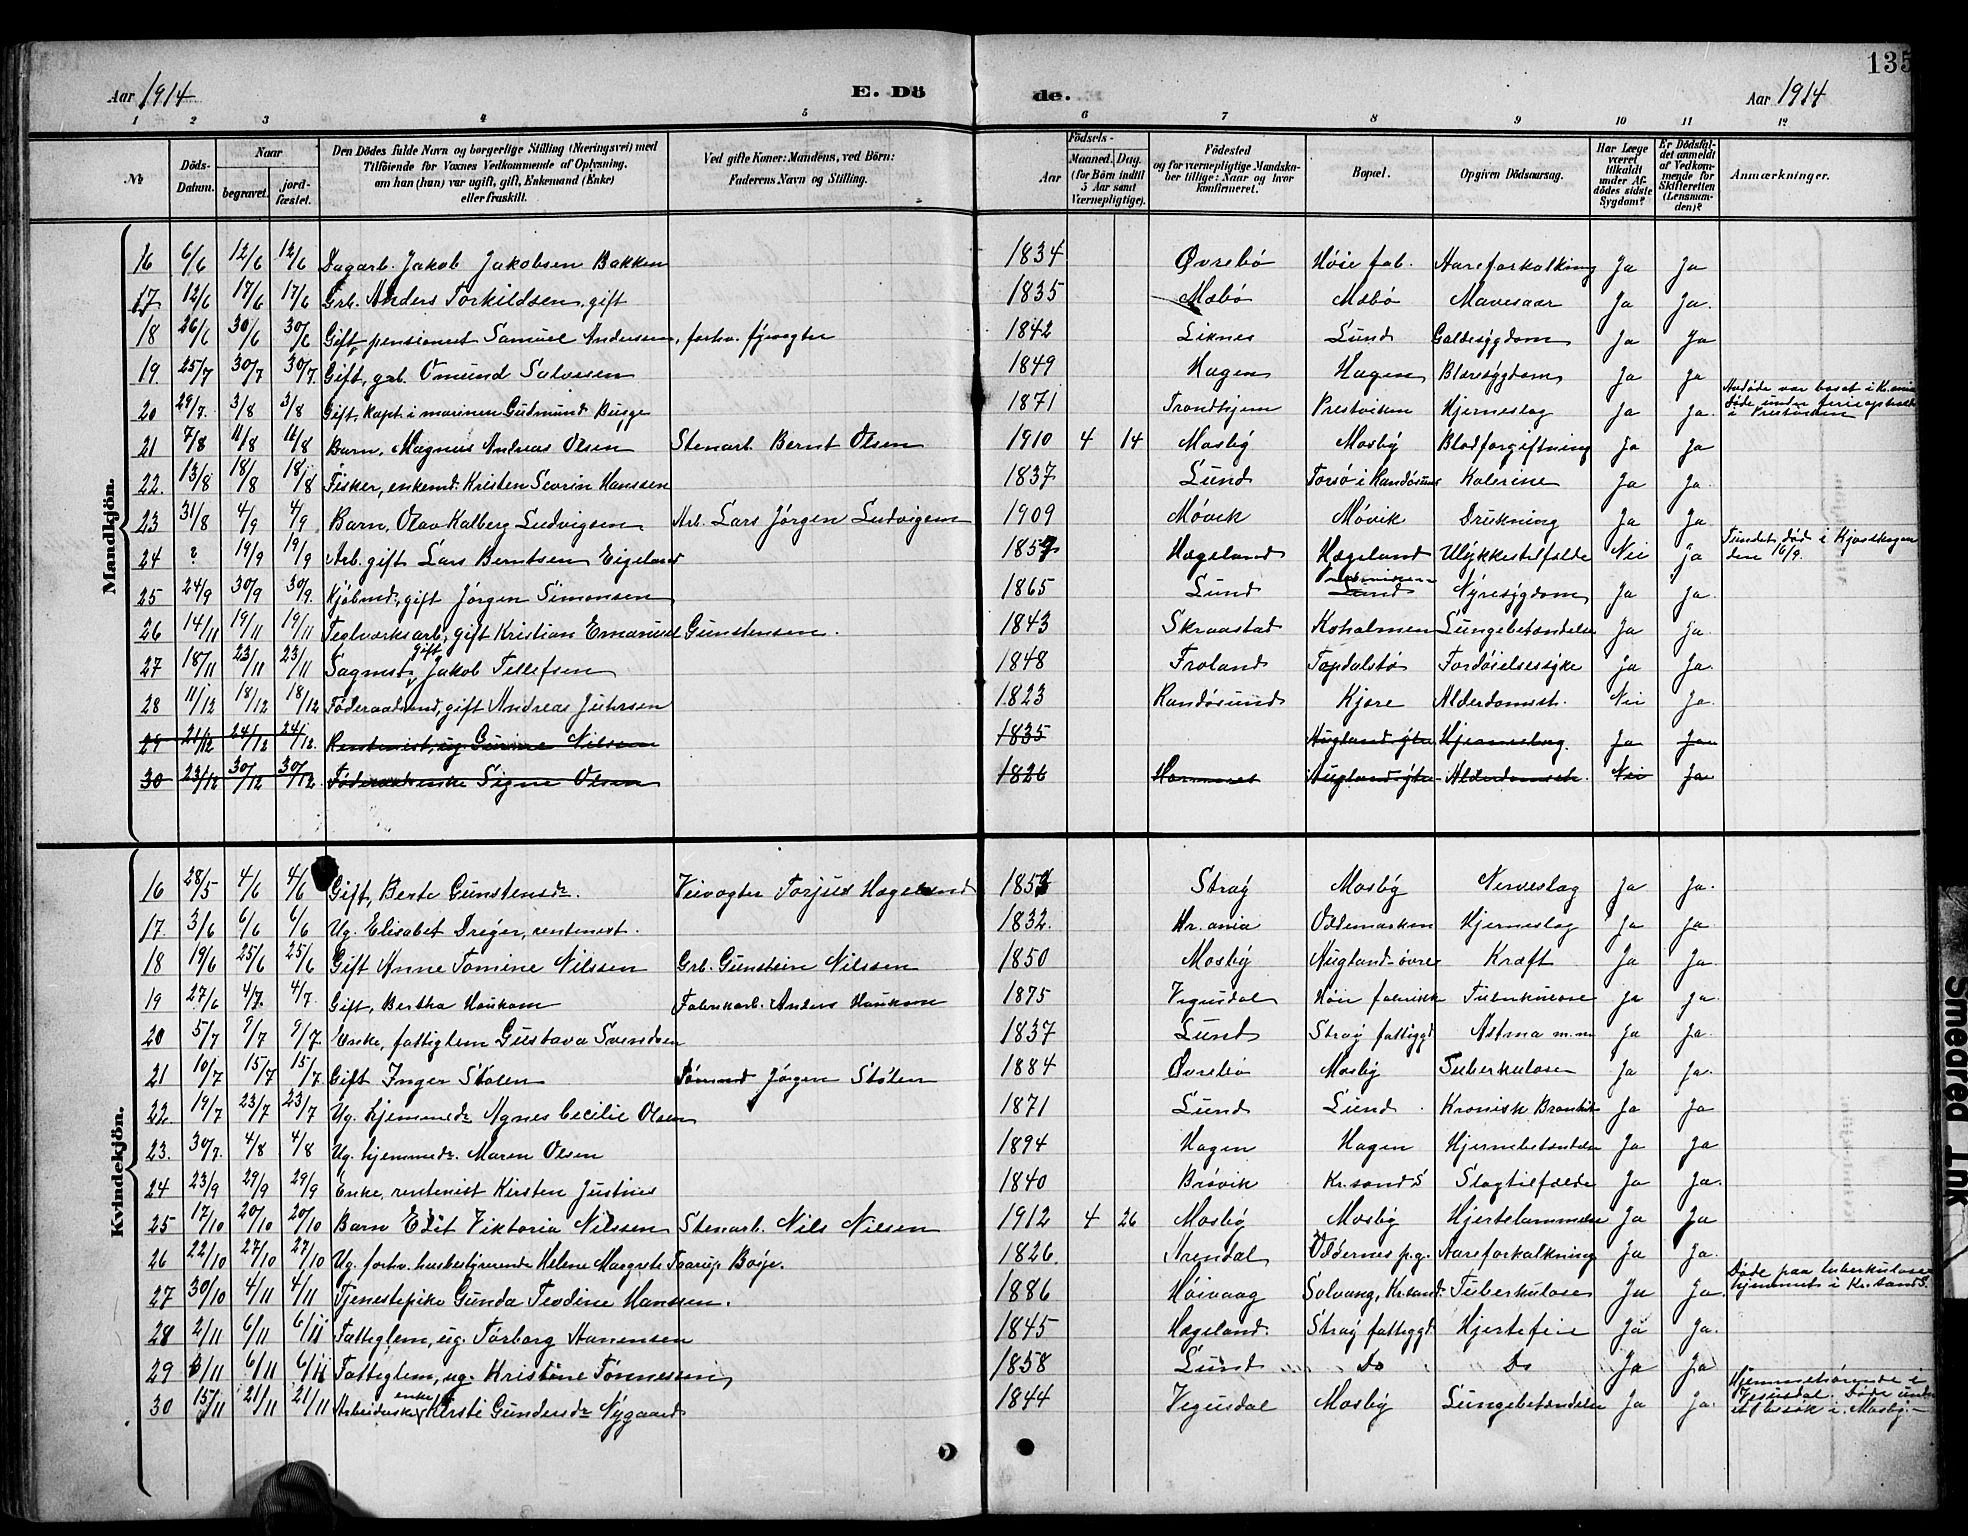 135
Aar 1914 E. Dö de. Aar 1914
1 2 3 4 5 6 7 8 9 10 11 12
No. Döds-Datum. Naar begravet. jordfæstet. Den Dödes fulde Navn og borgerlige Stilling (Næringsvei) med Tilföiende for Voxnes Vedkommende af Oplysning, om han (hun) var ugift, gift, Enkemand (Enke) eller fraskilt. Ved gifte Koner: Mandens, ved Börn: Faderens Navn og Stilling. Födsels- Aar Maaned. Dag. (for Börn indtil 5 Aar samt Værnepligtige). Födested og for værnepligtige Mandskaber tillige: Naar og hvor konfirmeret. Bopæl. Opgiven Dödsaarsag. Har Læge været tilkaldt under Afdödes sidste Sygdom? Er Dödsfaldet anmeldt af Vedkommende for Skifteretten (Lensmanden)? Anmærkninger.
Mandkjön.
16 6/6 12/6 12/6 Dagarb. Jakob Jakobsen Bakken 1834 Øvrebø Høie fab. Aareforkalkning Ja Ja
17 12/6 17/6 17/6 Grb. Anders Torkildsen, gift 1835 Mæbø Mæbø Mavesaar Ja Ja.
18 26/6 30/6 30/6 Gift, pensioneret Samuel Andersen, forhv. fyrvogter 1842 Liknes Lund Galdesygdom Ja Ja
19. 25/7 30/7 30/7. Gift, grb. Omund Salvesen 1849 Hagen Hagen Blæresygdom Ja Ja
20 29/7. 3/8 3/8 Gift, kapt. i marinen Gudmund Bugge 1871 Trondhjem Prestviken Hjerneslag Ja Ja. Avdøde var bosat i Kr.ania Døde under ferieophold i Prestviken
21 7/8 11/8 11/8 Barn, Magnus Andreas Olsen Stenarb. Bernt Olsen 1910 4 14 Mosby Mosby Blodforgiftning Ja Ja
22. 13/8 18/8 18/8 Fisker, enkemd. Kristen Severin Hanssen 1837 Lund Torsø i Randøsund Kolerine Ja Ja.
23 31/8 4/9 4/9 Barn, Olav Kalberg Ludvigsen Arb. Lars Jørgen Ludvigsen 1909 Møvik Møvik Drukning Ja Ja
24 ? 19/9 19/9 Arb. gift Lars Berntsen Eigeland 1857 Hægeland Hægeland Ulykkestilfælde Nei ja Fundet død i den 16/9.
25 24/9 30/9 30/9. Kjøbmd., gift Jørgen Simonsen 1865 Lund Lund Nyresygdom Ja Ja.
26 14/11 19/11 19/11 Teglværksarb., gift Kristian Emanuel Gunstensen. 1843 Skraastad Koholmen Lungebetændelse Ja ja.
27 18/11 23/11 23/11 Sagmst., gift Jakob Tellefsen 1848 Froland Topdalsbø Fordøielsessyke ja Ja.
28 11/12 18/12 18/12 Føderaadsmd, gift Andreas Juhrsen 1823 Randøsund Kjære Alderdomssv. Nei Ja.
29 21/12 24/12 24/12. Rentenist, ug. Gurine Nilssen 1835 Augland ytre Hjerneslag. Ja Ja
30 23/12 30/12 30/12. Føderaadsenke Signe Olsen 1826 Augland ytre Alderdomssv. Nei Ja
Kvindekjön.
16 28/5 4/6 4/6 Gift, Berte Gunstensdr. Veivogter Torjus Hægeland 1853 Stray Mosby Nerveslag Ja Ja.
17. 3/6 6/6 6/6 Ug. Elisabet Dreyer, rentenist. 1832. Kr.ania Oddemarken Hjerneslag Ja Ja
18 19/6 25/6 25/6 Gift Anne Tomine Nilssen Grb. Gunstein Nilssen 1850 Mosby Augland-øvre Kræft Ja Ja.
19 27/6 4/7. 4/7. Gift, Bertha Haukom Fabrikarb. Anders Haukom 1875 Vegusdal Høie fabrikk Tuberkulose ja Ja.
20 5/7 9/7 9/7 Enke, fattiglem Gustava Svendsen 1837 Lund Stray fattiggd Astma m.m Ja Ja
21 10/7 15/7 15/7 Gift Inger Stølen Sømand Jørgen Stølen 1884 Øvrebø Mosby Tuberkulose Ja Ja.
22. 19/7 23/7 23/7 Ug. hjemmedr. Agnes Cecilie Olsen 1871 Lund Lund Kronisk Bronkit Ja Ja
23. 30/7. 4/8 4/8 Ug. hjemmedr. Maren Olsen 1894 Hagen Hagen Hjernebetændelse Ja Ja
24 23/9 29/9 29/9 Enke, rentenist Kirsten Justnes 1840 Brøvik Kr.sand S Slagtilfælde Ja Ja.
25 17/10 20/10 20/10 Barn Edit Viktoria Nilssen Stenarb. Nils Nilsen 1912 4 26 Mosby Mosby Hjertelammelse Ja Ja
26 22/10 27/10 27/10 Ug. forhv. husbestyrerinde Helene Margrete Taarup Bøije. 1826. Arendal Oddernes p.g. Aareforkalkning Ja Ja.
27 30/10 4/11 4/11 Tjenestepike Gunda Teodine Hanssen. 1886 Høivaag Solvang, Kr.sand Tuberkulose Ja Ja. Døde paa tuberkulosehjemmet i Kr.sand S.
28 2/11 6/11 6/11 Fattiglem, ug. Torborg Hanensen 1845 Hægeland. Stray fattiggd Hjertefeil Ja Ja.
29 3/11 6/11 6/11 Fattiglem, ug. Kristine Tønnessen 1858 Lund Do Do Ja Ja
30 15/11 21/11 21/11 Arbeiderske, enke Kirsti Gundersdr. Nygaard 1844 Vegusdal Mosby Lungebetændelse Ja Ja. Hjemmehørende i Vegusdal. Døde under et besøk i Mosby.
Smeared Ink